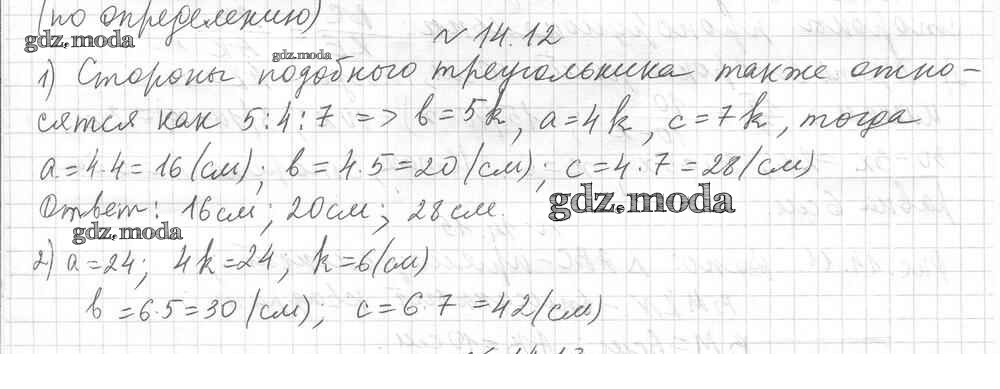 (по определению)
gdz.moda
№ 14.12
gdz.moda
1) Стороны подобного треугольника также отно-
сятся как 5:4:7 => b=5k, a=4k, c=7k, тогда
a=4·4=16(см); b=4·5=20(см); c=4·7=28(см)
Ответ: 16см; 20см; 28см.
gdz.moda
gdz.moda
2) a=24; 4k=24, k=6(см)
b=6·5=30(см); c=6·7=42(см)